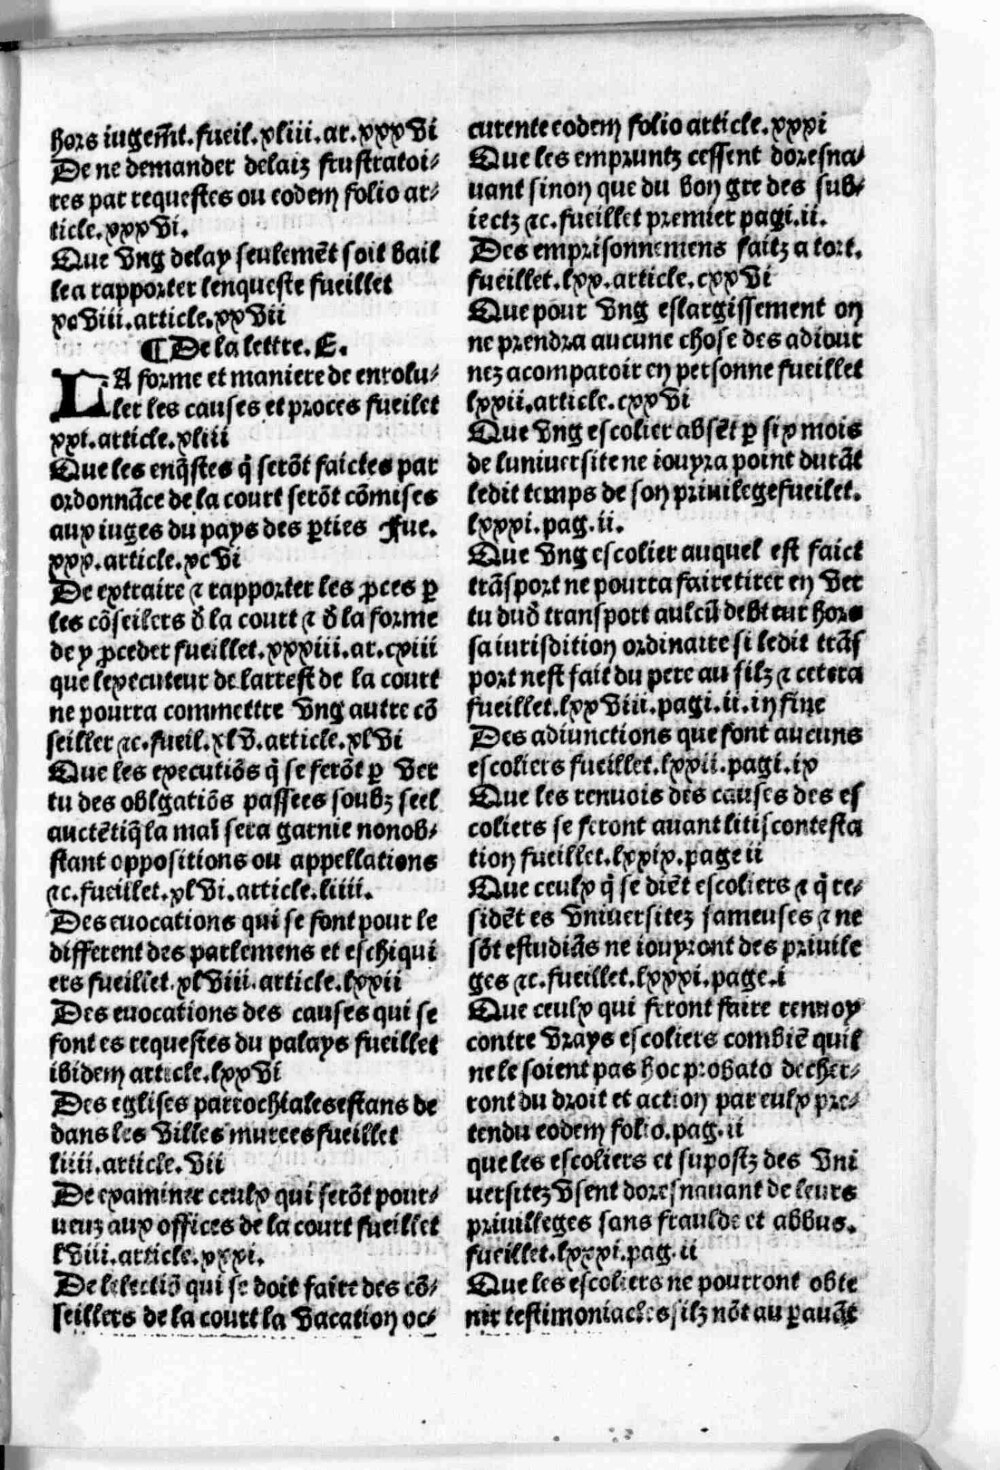 hors iugem̃t.fueil.xliii.ar.xxxvi
De ne demander delaiz frustratoi-
res par requestes ou eodem folio ar-
ticle.xxxvi.
Que vng delay seulemẽt soit bail
le a rapporter lenqueste fueillet
xcviii.article.xxvii
¶ De la lettre.E.
LA forme et maniere de enrolu-
ler les causes et proces fueilet
xxi.article.xliii
Que les enq̃stes q̃ serõt faictes par
ordonnãce de la court serõt cõmises
aux iuges du pays des ꝑties Fue.
xxx.article.xcvi
De extraire ⁊ rapporter les ꝓces ꝑ
les cõseilers d̃ la court ⁊ d̃ la forme
de y ꝓceder fueillet.xxxiii.ar.cxiii
que lexecuteur de larrest de la court
ne pourra commettre vng autre cõ
seiller ⁊c.fueil.xlv.article.xlvi
Que les executiõs q̃ se ferõt ꝑ ver
tu des oblgatiõs passees soubz seel
auctẽtiq̃ la maĩ sera garnie nonob-
stant oppositions ou appellations
⁊c.fueillet.xlvi.article.liiii.
Des euocations qui se font pour le
different des parlemens et eschiqui
ers fueillet.xlviii.article.lxxii
Des euocations des causes qui se
font es requestes du palays fueillet
ibidem article.lxxvi
Des eglises parrochiales estans de
dans les villes murees fueillet
liiii.article.vii
De examiner ceulx qui serõt pour-
ueuz aux offices de la court fueillet
lviii.article.xxxi.
De lelectiõ qui se doit faire des cõ-
seillers de la court la vacation oc-
curente eodem folio article.xxxi
Que les empruntz cessent doresna-
uant sinon que du bon gre des sub-
iectz ⁊c.fueillet premier pagi.ii.
Des emprisonnemens faitz a tort.
fueillet.lxx.article.cxxvi
Que pour vng eslargissement on
ne prendra aucune chose des adiour
nez a comparoir en personne fueillet
lxxii.article.cxxvi
Que vng escolier absẽt ꝑ six mois
de luniuersite ne iouyra point durãt
ledit temps de son priuilege fueilet.
lxxxi.pag.ii.
Que vng escolier auquel est faict
trãsport ne pourra faire tirer en ver
tu dud̃ transport aulcũ debteur hors
sa iurisdition ordinaire si ledit trãs
port nest fait du pere au filz ⁊ cetera
fueillet.lxxviii.pagi.ii.in fine
Des adiunctions que font aucuns
escoliers fueillet.lxxii.pagi.ix
Que les renuois des causes des es
coliers se feront auant litiscontesta
tion fueillet.lxxix.page ii
Que ceulx q̃ se diẽt escoliers ⁊ q̃ re-
sidẽt es vniuersitez fameuses ⁊ ne
sõt estudiãs ne iouyront des priuile
ges ⁊c.fueillet.lxxxi.page.i
Que ceulx qui feront faire renuoy
contre vrays escoliers combiẽ quil
ne le soient pas hoc probato decher-
ront du droit et action par eulx pre-
tendu eodem folio.pag.ii
que les escoliers et supostz des vni
uersitez vsent doresnauant de leurs
priuilleges sans fraulde et abbus.
fueillet.lxxxi.pag.ii
Que les escoliers ne pourront obte
nir testimoniacles silz nõt au ꝑauãt